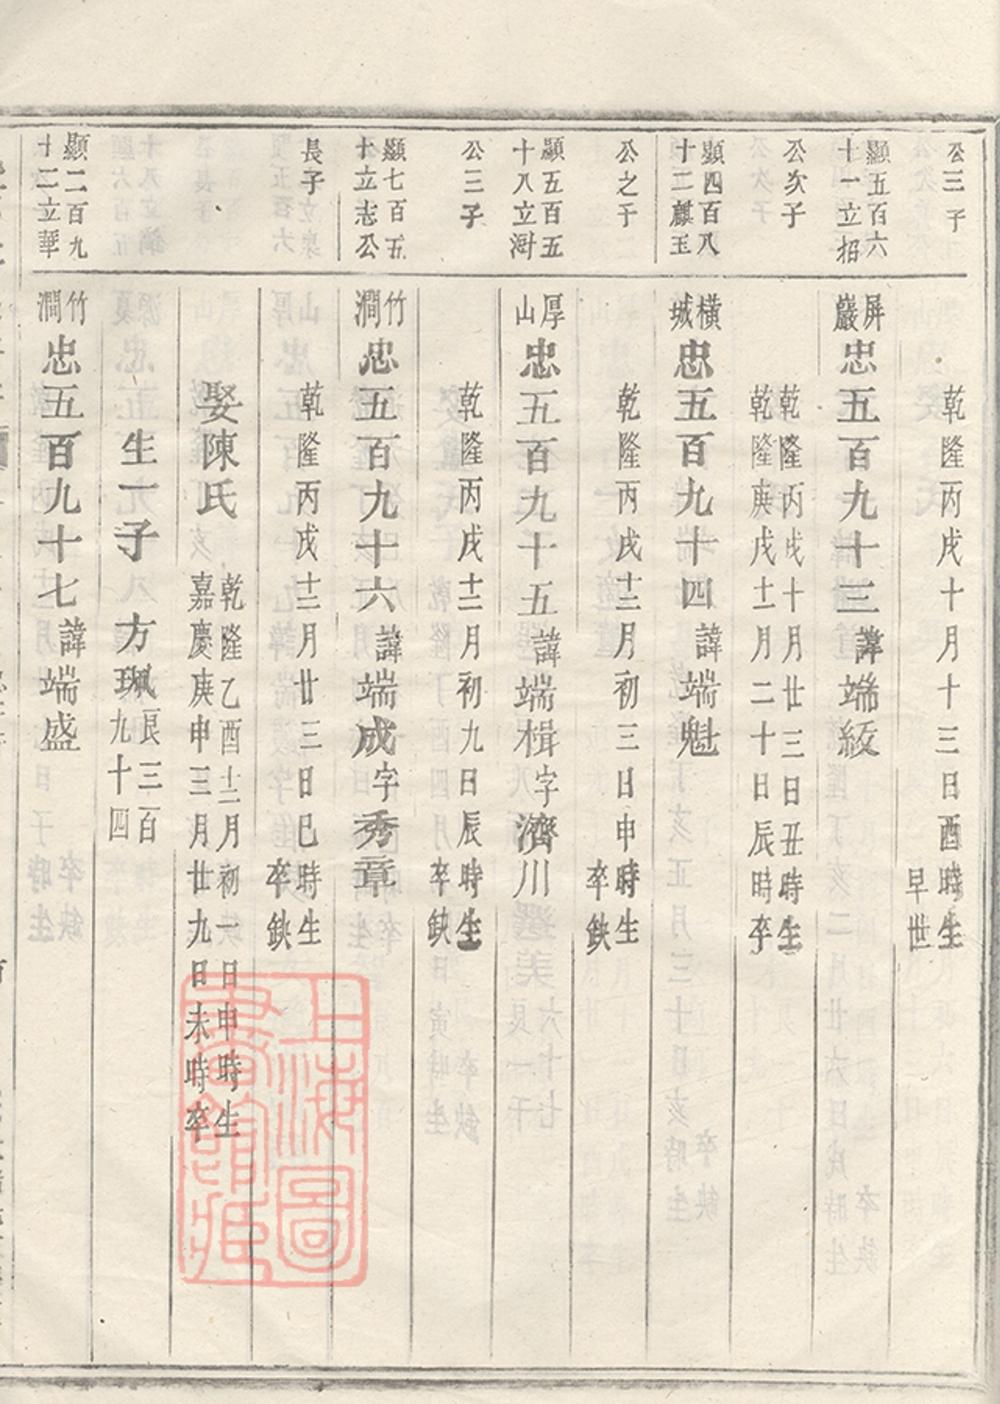 公三子
乾隆丙戌十月十三日酉時生
早世
顯五百六
十一立招
屏
巖
忠五百九十三諱端綏
公次子
乾隆丙戌十月廿三日丑時生
乾隆庚戌十一月二十日辰時卒
顯四百八
十二麒玉
橫
城
忠五百九十四諱端魁
公之子
乾隆丙戌十二月初三日申時生
卒鈌
顯五百五
十八立澍
厚
山
忠五百九十五諱端楫字濟川
公三子
乾隆丙戌十二月初九日辰時生
卒鈌
顯七百五
十立志公
竹
澗
忠五百九十六諱端成字秀章
長子
乾隆丙戌十二月廿三日巳時生
卒鈌
娶陳氏
乾隆乙酉十二月初一日申時生
嘉慶庚申三月廿九日未時卒
生一子
方珮
良三百
九十四
顯二百九
十二立華
竹
澗
忠五百九十七諱端盛
上海圖
書館藏